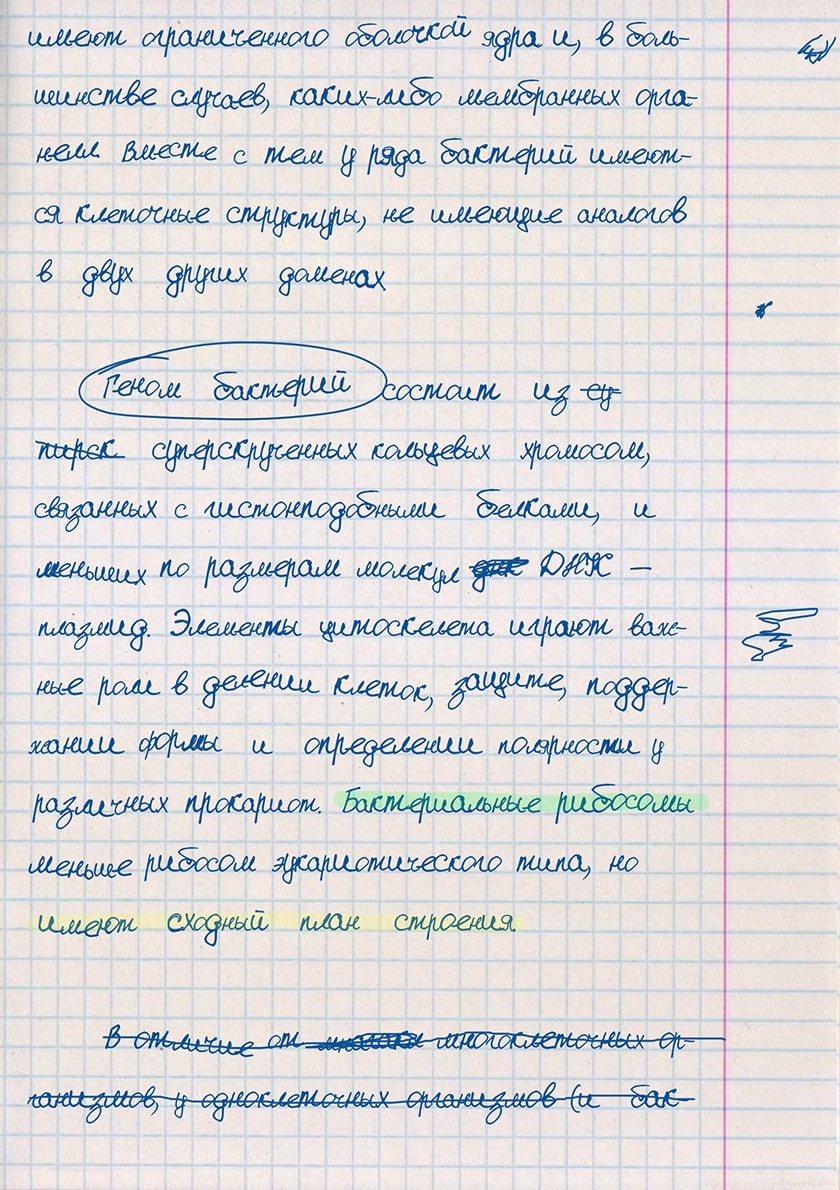 имеют ограниченного оболочкой ядра и, в боль-
шинстве случаев, каких-либо мембранных орга-
нелл. Вместе с тем у ряда бактерий имеют-
ся клеточные структуры, не имеющие аналогов
в двух других доменах
Геном бактерий состоит из су
суперскрученных кольцевых хромосом,
связанных с гистонподобными белками, и
меньших по размерам молекул днк ДНК —
плазмид. Элементы цитоскелета играют важ-
ные роли в делении клеток, защите, поддер-
жании формы и определении полярности у
различных прокариот. Бактериальные рибосомы
меньше рибосом эукариотического типа, но
имеют сходный план строения
В отличие от многоклеточных ор-
ганизмов, у одноклеточных организмов (и бак-